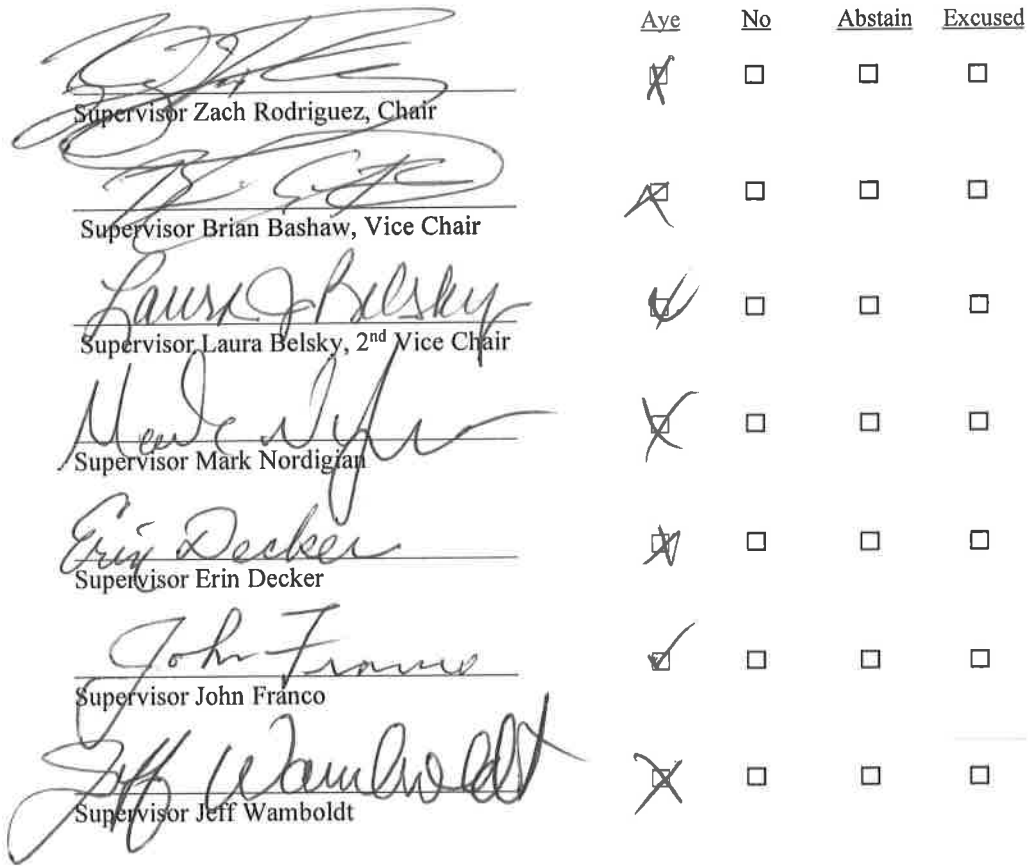 Aye No Abstain Excused
Supervisor Zach Rodriguez, Chair
Supervisor Brian Bashaw, Vice Chair
Laura J Belsky
Supervisor Laura Belsky, 2nd Vice Chair
Mark
Supervisor Mark Nordigian
Erin Decker
Supervisor Erin Decker
John Franco
Supervisor John Franco
Jeff Wamboldt
Supervisor Jeff Wamboldt